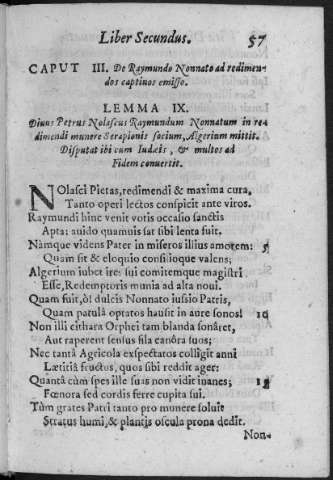 Liber Secundus. 57
CAPUT III. De Raymundo Nonnato ad redimen-
dos captiuos emisso.
LEMMA IX.
Diuus Petrus Nolascus Raymundum Nonnatum in re-
dimendi munere Serapionis socium, Algerium mittit.
Disputat ibi cum Iudæis, & multos ad
Fidem conuertit.
NOlasci Pietas, redimendi & maxima cura,
Tanto operi lectos conspicit ante viros.
Raymundi hinc venit votis occasio sanctis
Apta: auido quamuis sat sibi lenta fuit.
Nàmque videns Pater in miseros illius amorem: 5
Quam sit & eloquio consilioque valens;
Algerium iubet ire: sui comitemque magistri
Esse, Redemptoris munia ad alta noui.
Quam fuit, ò! dulcis Nonnato iussio Patris,
Quam patulâ optatos hausit in aure sonos! 10
Non illi cithara Orphei tam blanda sonâret,
Aut raperent sensus fila canôra suos;
Nec tantâ Agricola exspectatos colligit anni
Lætitiâ fructos, quos sibi reddit ager:
Quantâ cùm spes ille suas non vidit inanes; 15
Fœnora sed cordis ferre cupita sui.
Tùm grates Patri tanto pro munere soluit
Stratus humi, & plantis oscula prona dedit.
Non-